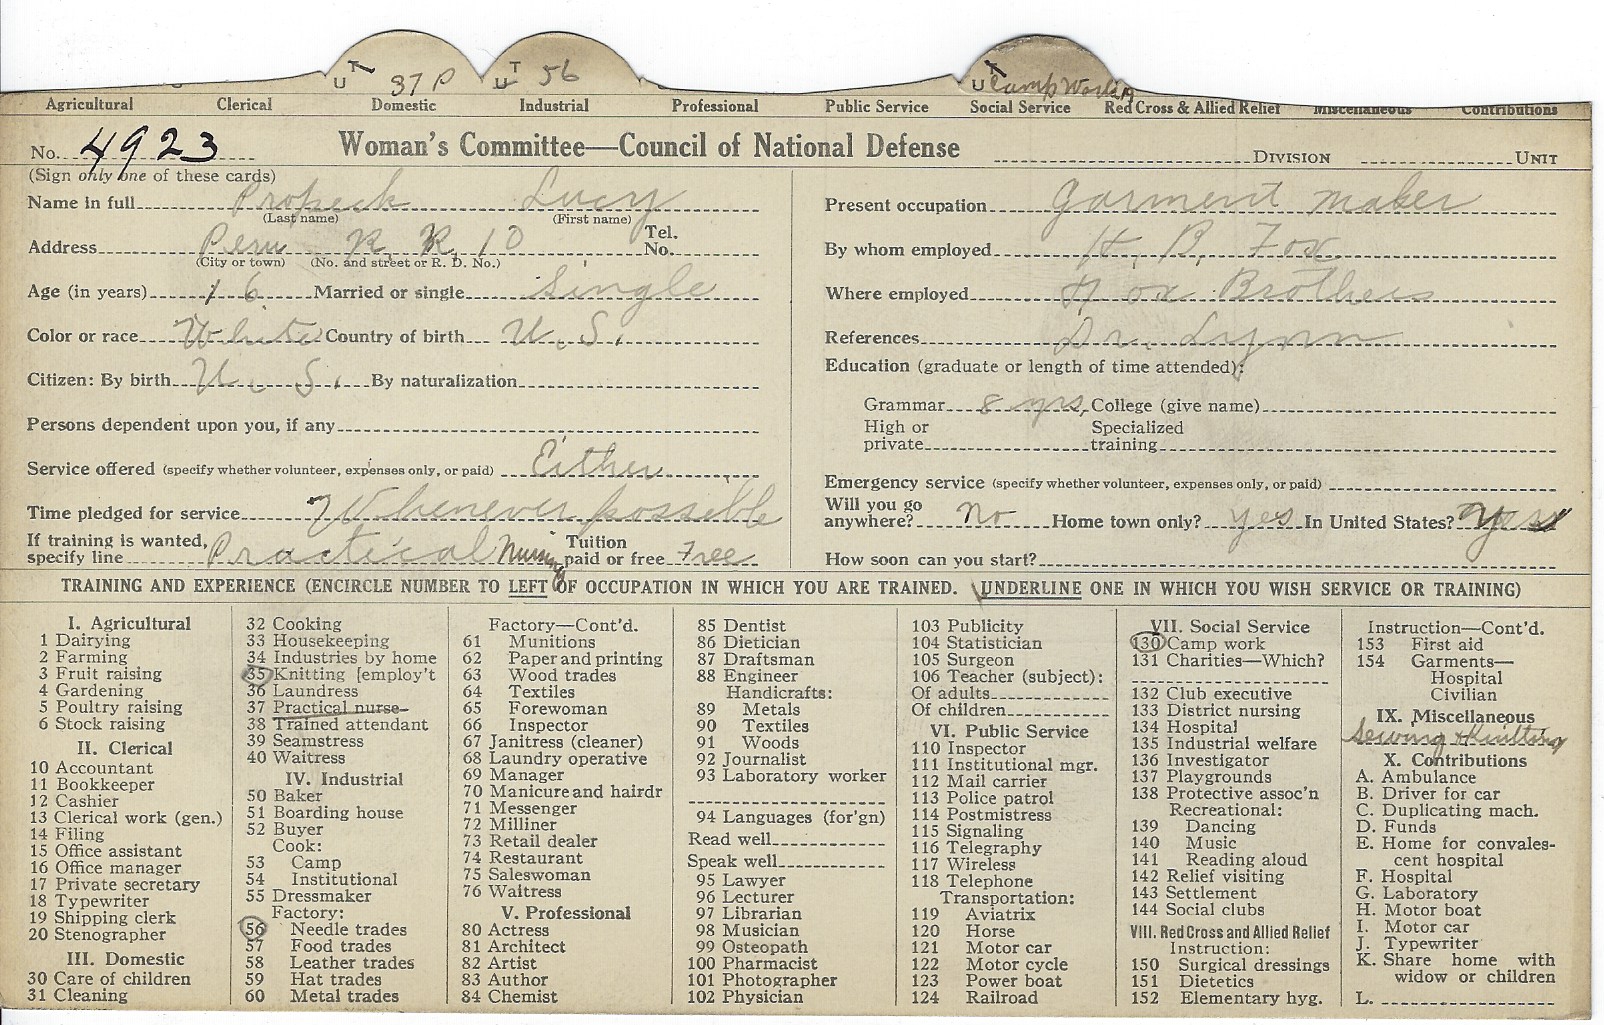 U T 37 P U T 56 U T Camp Work
Agricultural Clerical Domestic Industrial Professional Public Service Social Service Red Cross & Allied Relief Miscellaneous Contributions
No. 4923 Woman's Committee—Council of National Defense DIVISION UNIT
(Sign only one of these cards)
Name in full Propeck Lucy
(Last name) (First name)
Address Peru R. R. 10 Tel. No.
(City or town) (No. and street or R. D. No.)
Age (in years) 16 Married or single Single
Color or race White Country of birth U. S.
Citizen: By birth U. S. By naturalization
Persons dependent upon you, if any
Service offered (specify whether volunteer, expenses only, or paid) Either
Time pledged for service Whenever possible
If training is wanted, specify line Practical Nursing Tuition paid or free Free
Present occupation Garment maker
By whom employed H. B. Fox
Where employed Fox Brothers
References Dr. Lynn
Education (graduate or length of time attended):
Grammar 8 yrs, College (give name)
High or private Specialized training
Emergency service (specify whether volunteer, expenses only, or paid)
Will you go anywhere? No Home town only? yes In United States? yes
How soon can you start?
TRAINING AND EXPERIENCE (ENCIRCLE NUMBER TO LEFT OF OCCUPATION IN WHICH YOU ARE TRAINED. UNDERLINE ONE IN WHICH YOU WISH SERVICE OR TRAINING)
I. Agricultural
1 Dairying
2 Farming
3 Fruit raising
4 Gardening
5 Poultry raising
6 Stock raising
II. Clerical
10 Accountant
11 Bookkeeper
12 Cashier
13 Clerical work (gen.)
14 Filing
15 Office assistant
16 Office manager
17 Private secretary
18 Typewriter
19 Shipping clerk
20 Stenographer
III. Domestic
30 Care of children
31 Cleaning
32 Cooking
33 Housekeeping
34 Industries by home
35 Knitting [employ't
36 Laundress
37 Practical nurse
38 Trained attendant
39 Seamstress
40 Waitress
IV. Industrial
50 Baker
51 Boarding house
52 Buyer
Cook:
53 Camp
54 Institutional
55 Dressmaker
Factory:
56 Needle trades
57 Food trades
58 Leather trades
59 Hat trades
60 Metal trades
Factory—Cont'd.
61 Munitions
62 Paper and printing
63 Wood trades
64 Textiles
65 Forewoman
66 Inspector
67 Janitress (cleaner)
68 Laundry operative
69 Manager
70 Manicure and hairdr
71 Messenger
72 Milliner
73 Retail dealer
74 Restaurant
75 Saleswoman
76 Waitress
V. Professional
80 Actress
81 Architect
82 Artist
83 Author
84 Chemist
85 Dentist
86 Dietician
87 Draftsman
88 Engineer
Handicrafts:
89 Metals
90 Textiles
91 Woods
92 Journalist
93 Laboratory worker
94 Languages (for'gn)
Read well
Speak well
95 Lawyer
96 Lecturer
97 Librarian
98 Musician
99 Osteopath
100 Pharmacist
101 Photographer
102 Physician
103 Publicity
104 Statistician
105 Surgeon
106 Teacher (subject):
Of adults
Of children
VI. Public Service
110 Inspector
111 Institutional mgr.
112 Mail carrier
113 Police patrol
114 Postmistress
115 Signaling
116 Telegraphy
117 Wireless
118 Telephone
Transportation:
119 Aviatrix
120 Horse
121 Motor car
122 Motor cycle
123 Power boat
124 Railroad
VII. Social Service
130 Camp work
131 Charities—Which?
132 Club executive
133 District nursing
134 Hospital
135 Industrial welfare
136 Investigator
137 Playgrounds
138 Protective assoc'n
Recreational:
139 Dancing
140 Music
141 Reading aloud
142 Relief visiting
143 Settlement
144 Social clubs
VIII. Red Cross and Allied Relief
Instruction:
150 Surgical dressings
151 Dietetics
152 Elementary hyg.
Instruction—Cont'd.
153 First aid
154 Garments—
Hospital
Civilian
IX. Miscellaneous
Sewing & Knitting
X. Contributions
A. Ambulance
B. Driver for car
C. Duplicating mach.
D. Funds
E. Home for convales-
cent hospital
F. Hospital
G. Laboratory
H. Motor boat
I. Motor car
J. Typewriter
K. Share home with
widow or children
L.